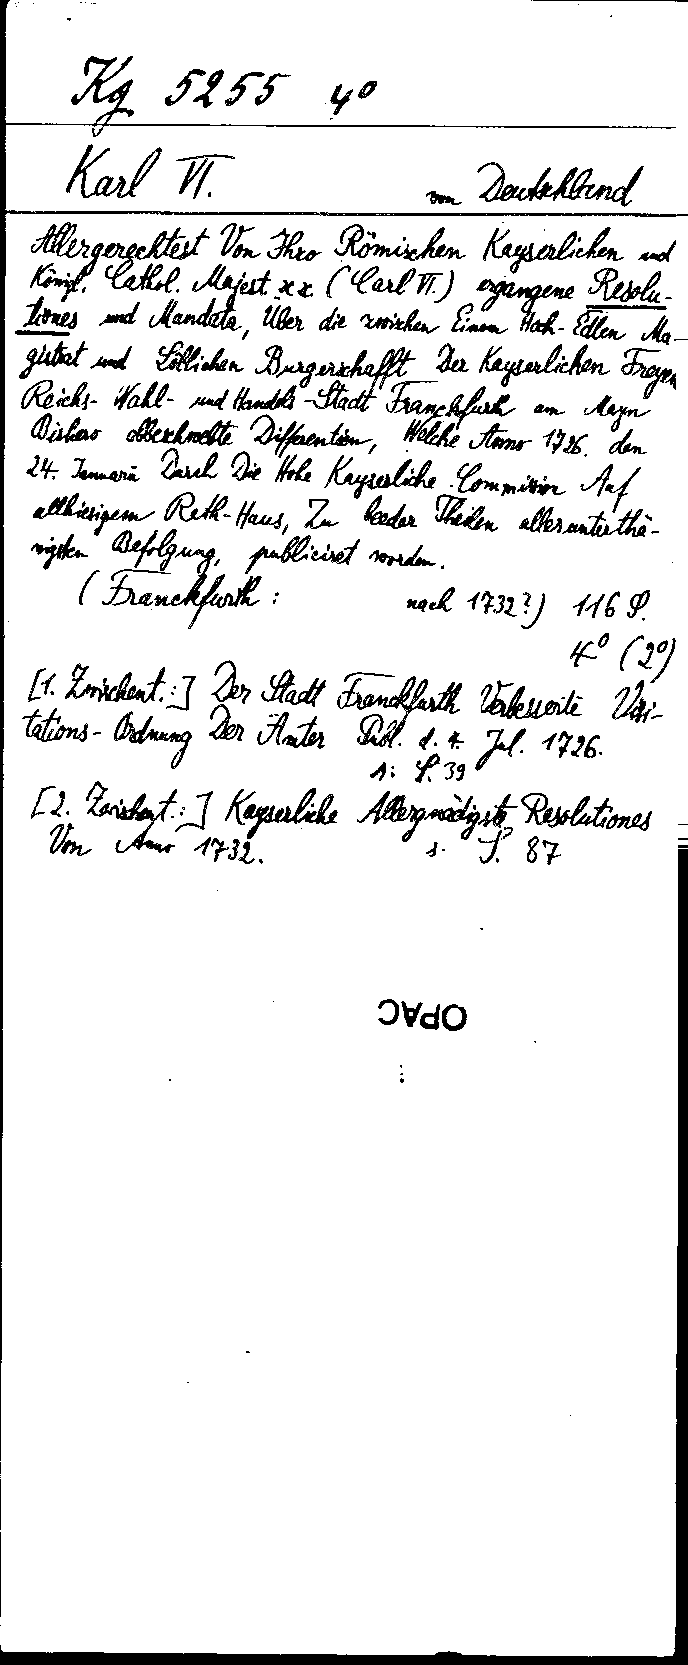 Kg 5255 4°
Karl VI. von Deutschland
Allergerechtest Von Ihro Römischen Kayserlichen und
Königl. Cathol. Majest. xx (Carl VI.) ergangene Resolu-
tiones und Mandata, Über die zwischen Einem Hoch-Edlen Ma-
gistrat und Löblichen Burgerschafft Der Kayserlichen Freyen
Reichs- Wahl- und Handels-Stadt Franckfurth am Mayn
Bishero obbeschwebte Differentien, Welche Anno 1726. den
24. Januarii Durch Die Hohe Kayserliche Commission Auf
allhiesigem Rath-Haus, Zu beeder Theilen allerunterthä-
nigsten Befolgung, publiciret worden.
(Franckfurth: nach 1732?) 116 S.
4° (2°)
[1. Zwischent.:] Der Stadt Franckfurth Verbesserte Visi-
tations-Ordnung Der Ämter Publ. d. 4. Jul. 1726.
s: S. 39
[2. Zwischent.:] Kayserliche Allergnädigste Resolutiones
Von Anno 1732. s. S. 87
OPAC